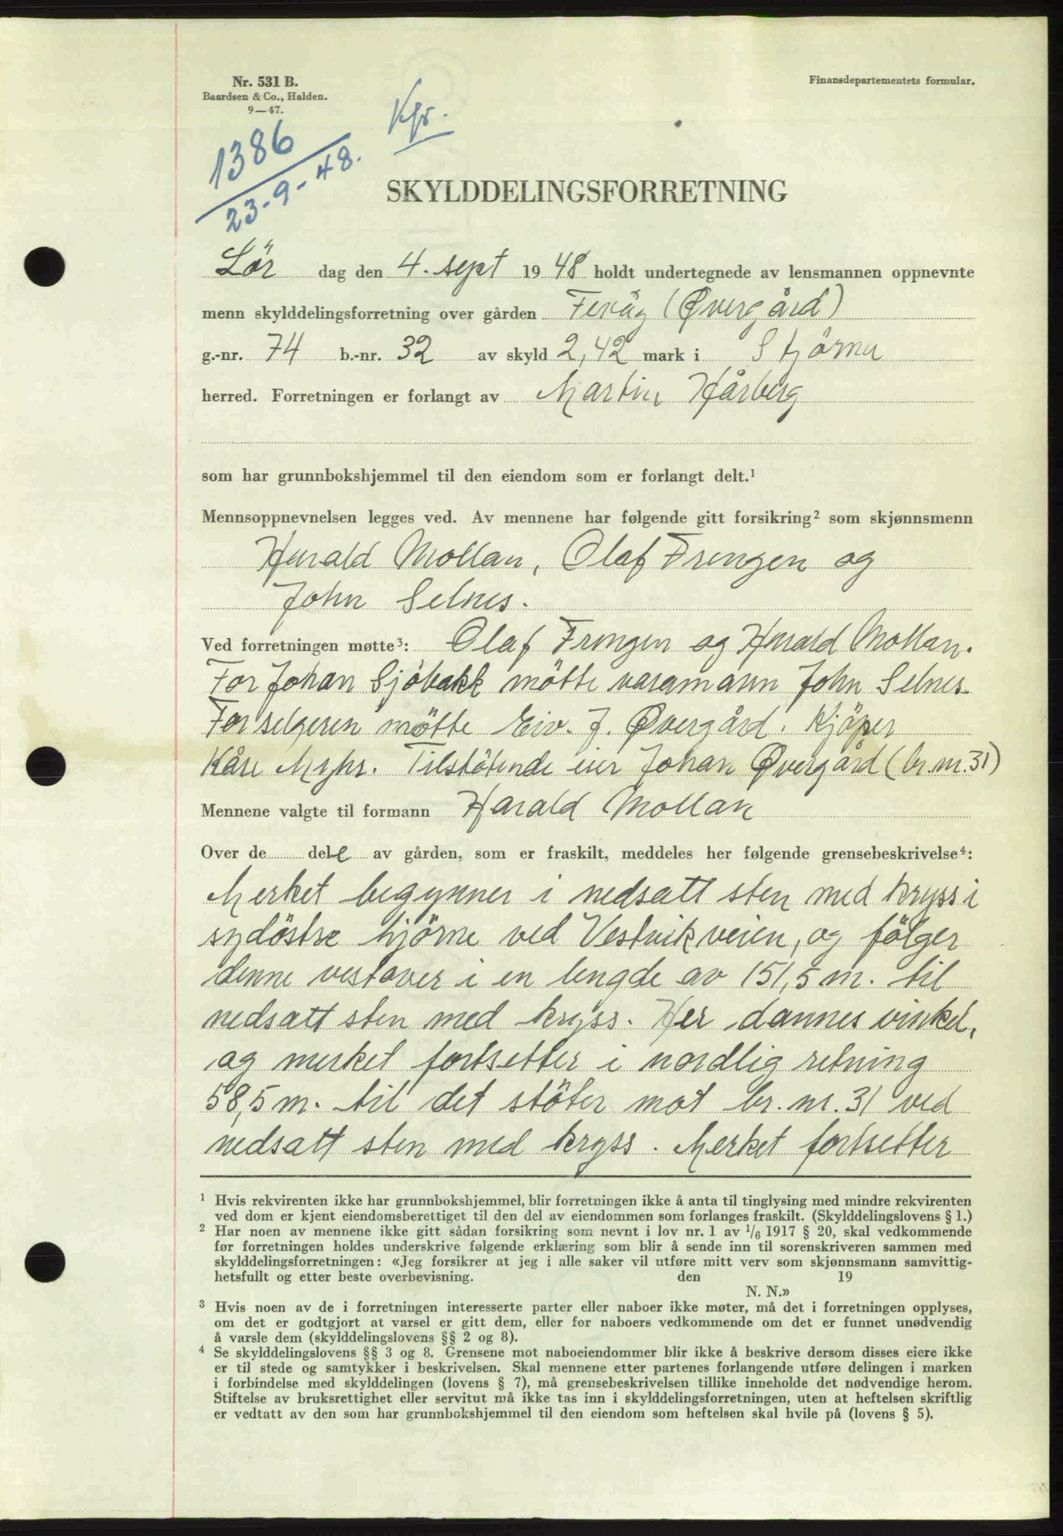 Nr. 531 B.
Baardsen & Co., Halden.
9—47.
Finansdepartementets formular.
1386
23-9-48.
Kfr.
SKYLDDELINGSFORRETNING
Lör dag den 4. sept 1948 holdt undertegnede av lensmannen oppnevnte
menn skylddelingsforretning over gården Fevåg (Øvergård)
g.-nr. 74 b.-nr. 32 av skyld 2,42 mark i Stjørna
herred. Forretningen er forlangt av Martin Hårberg
som har grunnbokshjemmel til den eiendom som er forlangt delt.¹
Mennsoppnevnelsen legges ved. Av mennene har følgende gitt forsikring² som skjønnsmenn
Harald Mollan, Olaf Frengen og
John Selnes.
Ved forretningen møtte³: Olaf Frengen og Harald Mollan.
For Johan Sjöbakk mötte varamann John Selnes.
For selgeren mötte Eiv. J. Øvergård. Kjöper
Kåre Myhr. Tilstötende eier Johan Øvergård (br.nr.31)
Mennene valgte til formann Harald Mollan
Over de dele av gården, som er fraskilt, meddeles her følgende grensebeskrivelse⁴:
Merket begynner i nedsatt sten med kryss i
sydöstre hjörne ved Vestvikveien, og fölger
denne vestover i en lengde av 151,5 m. til
nedsatt sten med kryss. Her dannes vinkel,
og merket fortsetter i nordlig retning
58,5 m. til det stöter mot br. nr. 31 ved
nedsatt sten med kryss. Merket fortsetter
¹ Hvis rekvirenten ikke har grunnbokshjemmel, blir forretningen ikke å anta til tinglysing med mindre rekvirenten
ved dom er kjent eiendomsberettiget til den del av eiendommen som forlanges fraskilt. (Skylddelingslovens § 1.)
² Har noen av mennene ikke gitt sådan forsikring som nevnt i lov nr. 1 av 1/6 1917 § 20, skal vedkommende
før forretningen holdes underskrive følgende erklæring som blir å sende inn til sorenskriveren sammen med
skylddelingsforretningen: «Jeg forsikrer at jeg i alle saker vil utføre mitt verv som skjønnsmann samvittig-
hetsfullt og etter beste overbevisning. den 19
N. N.»
³ Hvis noen av de i forretningen interesserte parter eller naboer ikke møter, må det i forretningen opplyses,
om det er godtgjort at varsel er gitt dem, eller for naboers vedkommende om det er funnet unødvendig
å varsle dem (skylddelingslovens §§ 2 og 8).
⁴ Se skylddelingslovens §§ 3 og 8. Grensene mot naboeiendommer blir ikke å beskrive dersom disses eiere ikke
er til stede og samtykker i beskrivelsen. Skal mennene etter partenes forlangende utføre delingen i marken
i forbindelse med skylddelingen (lovens § 7), må grensebeskrivelsen tillike inneholde det nødvendige herom.
Stiftelse av bruksrettighet eller servitut må ikke tas inn i skylddelingsforretningen, uten at heftelsen skriftlig
er vedtatt av den som har grunnbokshjemmel til den eiendom som heftelsen skal hvile på (lovens § 5).